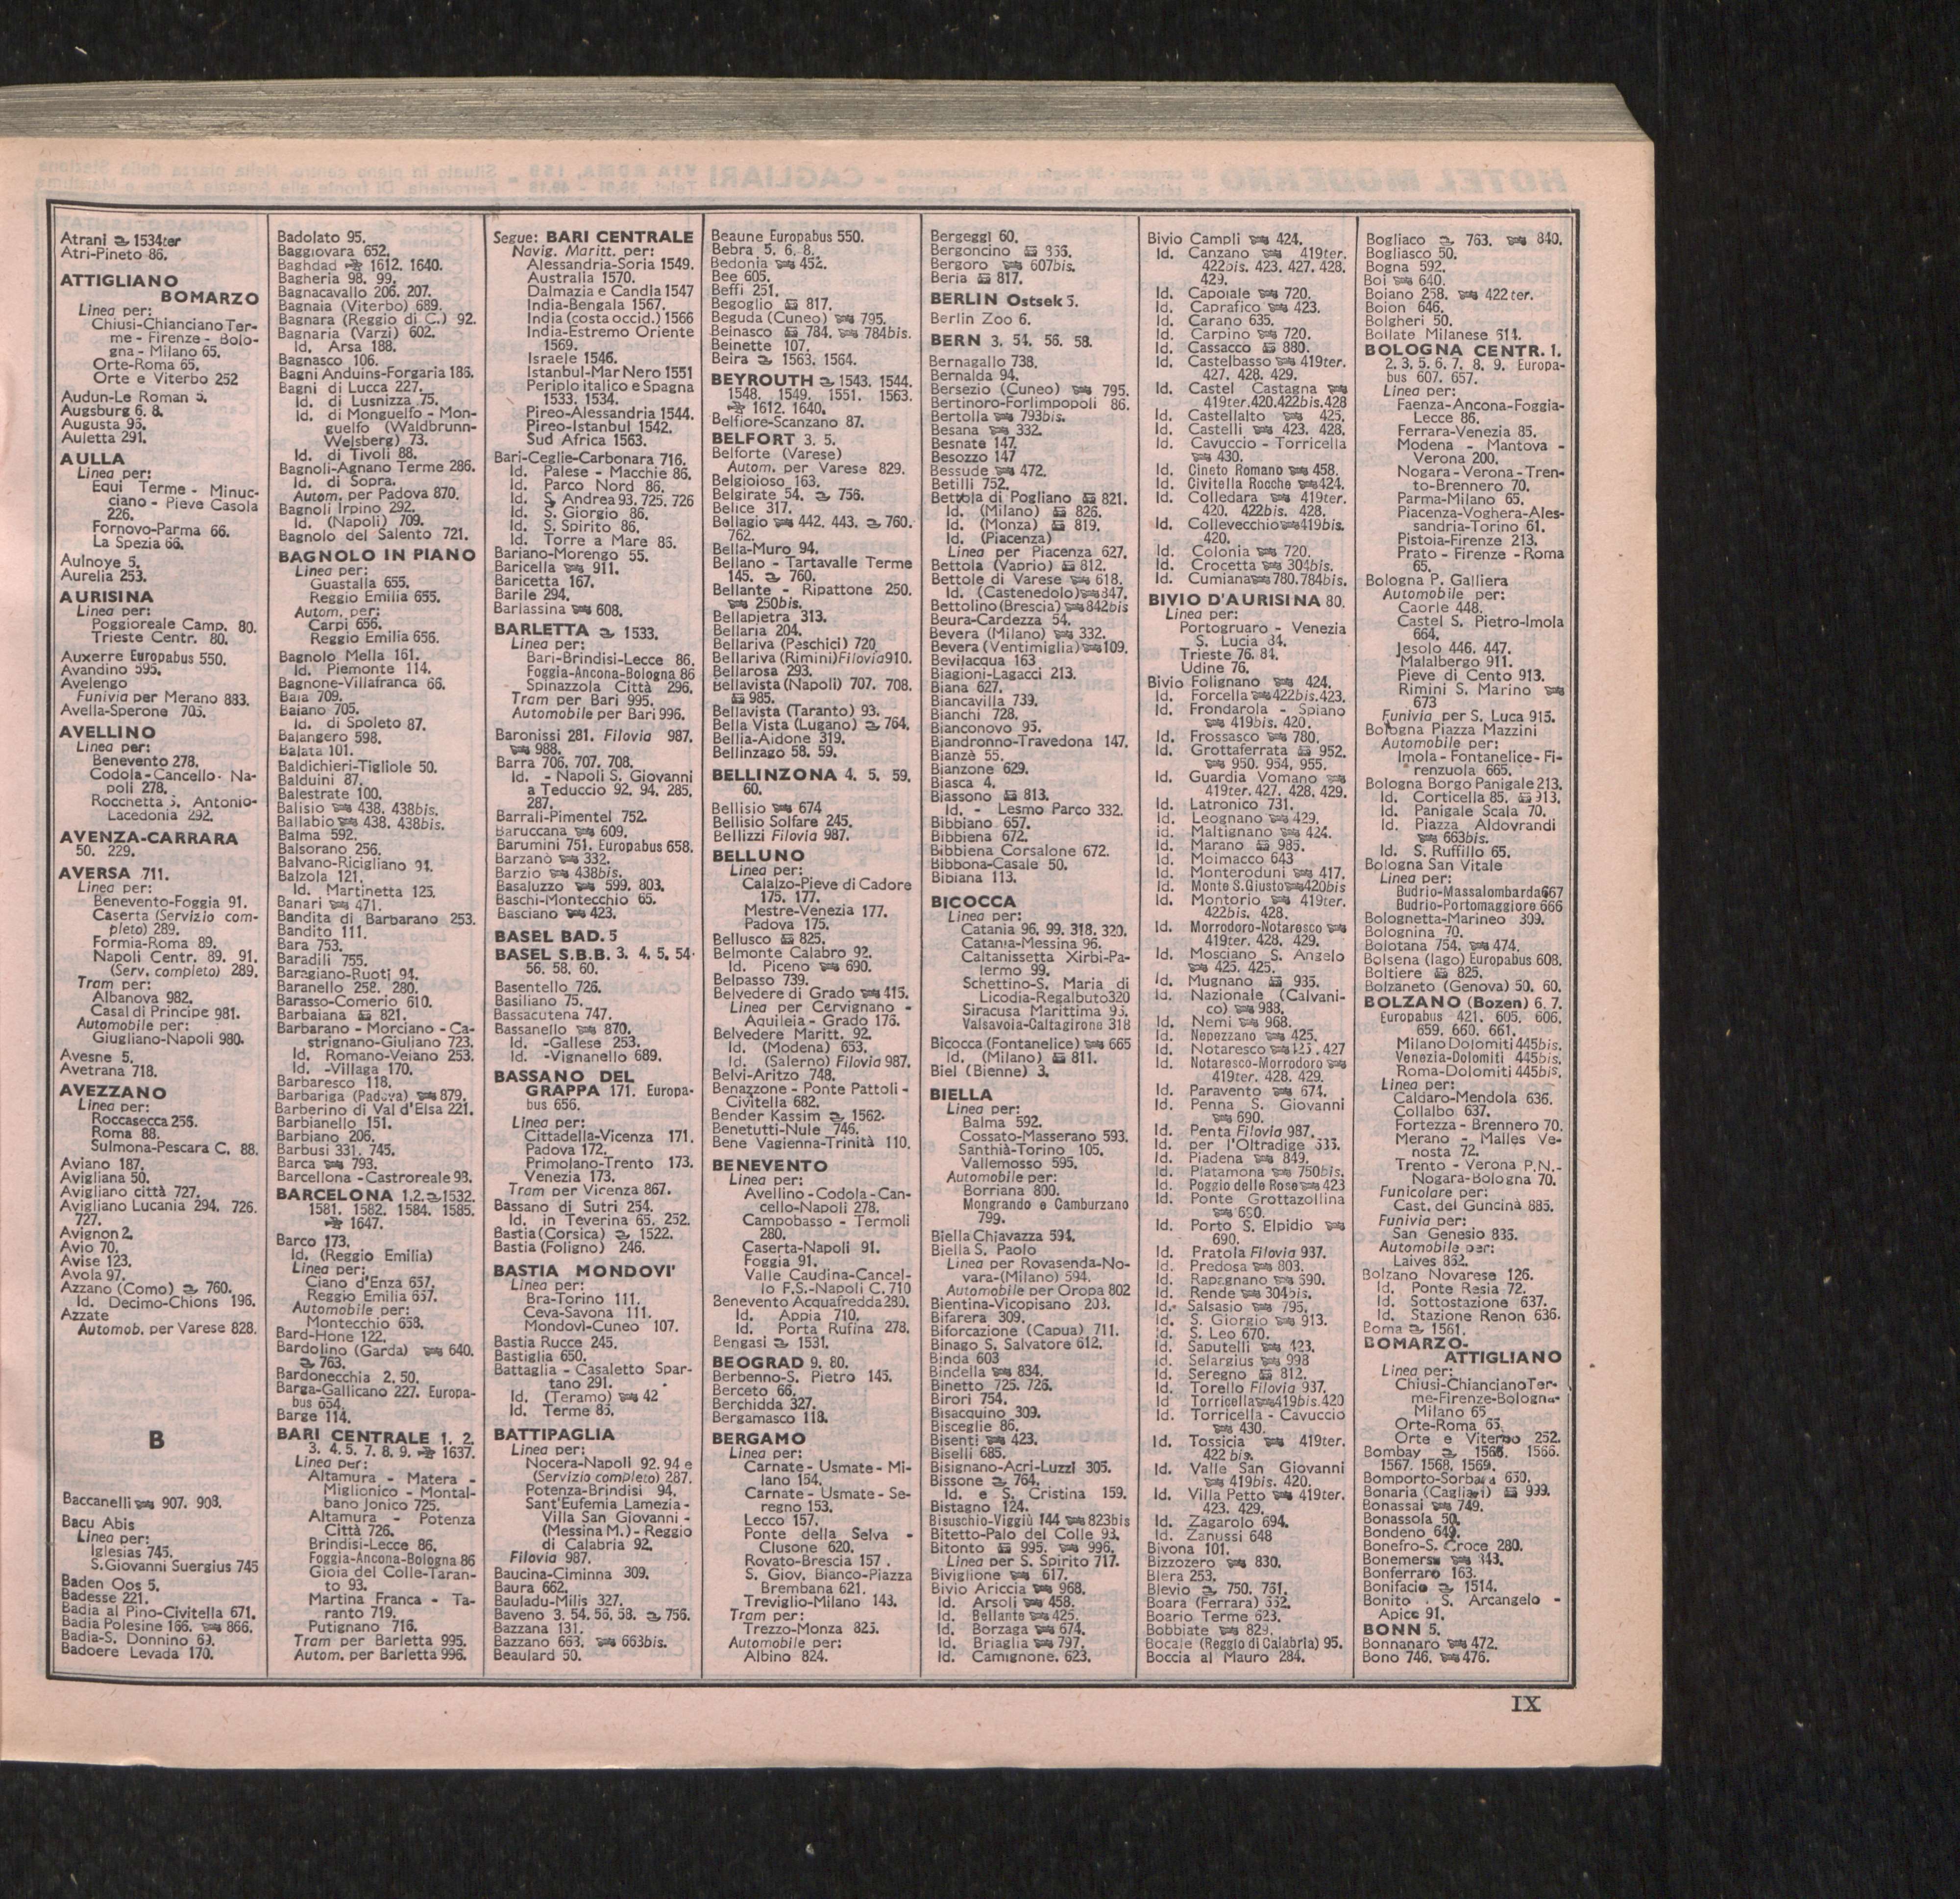 Atrani 1534ter
Atri-Pineto 86.
ATTIGLIANO
BOMARZO
Linea per:
Chiusi-Chianciano Ter-
me - Firenze - Bolo-
gna - Milano 65.
Orte-Roma 65.
Orte e Viterbo 252
Audun-Le Roman 5.
Augsburg 6. 8.
Augusta 96.
Auletta 291.
AULLA
Linea per:
Equi Terme - Minuc-
ciano - Pieve Casola
226.
Fornovo-Parma 66.
La Spezia 66.
Aulnoye 5.
Aurelia 253.
AURISINA
Linea per:
Poggioreale Camp. 80.
Trieste Centr. 80.
Auxerre Europabus 550.
Avandino 595.
Avelengo
Funivia per Merano 883.
Avella-Sperone 705.
AVELLINO
Linea per:
Benevento 278.
Codola-Cancello- Na-
poli 278.
Rocchetta S. Antonio-
Lacedonia 292.
AVENZA-CARRARA
50. 229.
AVERSA 711.
Linea per:
Benevento-Foggia 91.
Caserta (Servizio com-
pleto) 289.
Formia-Roma 89.
Napoli Centr. 89. 91.
(Serv. completo) 289.
Tram per:
Albanova 982.
Casal di Principe 981.
Automobile per:
Giugliano-Napoli 980.
Avesne 5.
Avetrana 718.
AVEZZANO
Linea per:
Roccasecca 256.
Roma 88.
Sulmona-Pescara C. 88.
Aviano 187.
Avigliana 50.
Avigliano città 727.
Avigliano Lucania 294. 726.
727.
Avignon 2.
Avio 70.
Avise 123.
Avola 97.
Azzano (Como) 760.
Id. Decimo-Chions 196.
Azzate
Automob. per Varese 828.
B
Baccanelli 907. 908.
Bacu Abis
Linea per:
Iglesias 745.
S.Giovanni Suergius 745
Baden Oos 5.
Badesse 221.
Badia al Pino-Civitella 671.
Badia Polesine 166. 866.
Badia-S. Donnino 69.
Badoere Levada 170.
Badolato 95.
Baggiovara 652.
Baghdad 1612. 1640.
Bagheria 98. 99.
Bagnacavallo 206. 207.
Bagnaia (Viterbo) 689.
Bagnara (Reggio di C.) 92.
Bagnaria (Varzi) 602.
Id. Arsa 188.
Bagnasco 106.
Bagni Anduins-Forgaria 186.
Bagni di Lucca 227.
Id. di Lusnizza 75.
Id. di Monguelfo - Mon-
guelfo (Waldbrunn-
Welsberg) 73.
Id. di Tivoli 88.
Bagnoli-Agnano Terme 286.
Id. di Sopra.
Autom. per Padova 870.
Bagnoli Irpino 292.
Id. (Napoli) 709.
Bagnolo del Salento 721.
BAGNOLO IN PIANO
Linea per:
Guastalla 655.
Reggio Emilia 655.
Autom. per:
Carpi 656.
Reggio Emilia 656.
Bagnolo Mella 161.
Id. Piemonte 114.
Bagnone-Villafranca 66.
Baia 709.
Baiano 705.
Id. di Spoleto 87.
Balangero 598.
Balata 101.
Baldichieri-Tigliole 50.
Balduini 87.
Balestrate 100.
Balisio 438. 438bis.
Ballabio 438. 438bis.
Balma 592.
Balsorano 256.
Balvano-Ricigliano 94.
Balzola 121.
Id. Martinetta 125.
Banari 471.
Bandita di Barbarano 253.
Bandito 111.
Bara 753.
Baradili 755.
Baragiano-Ruoti 94.
Baranello 258. 280.
Barasso-Comerio 610.
Barbaiana 821.
Barbarano - Morciano - Ca-
strignano-Giuliano 723.
Id. Romano-Veiano 253.
Id. -Villaga 170.
Barbaresco 118.
Barbariga (Padova) 879.
Barberino di Val d'Elsa 221.
Barbianello 151.
Barbiano 206.
Barbusi 331. 745.
Barca 793.
Barcellona - Castroreale 98.
BARCELONA 1.2. 1532.
1581. 1582. 1584. 1585.
1647.
Barco 173.
Id. (Reggio Emilia)
Linea per:
Ciano d'Enza 657.
Reggio Emilia 657.
Automobile per:
Montecchio 658.
Bard-Hone 122.
Bardolino (Garda) 640.
763.
Bardonecchia 2. 50.
Barga-Gallicano 227. Europa-
bus 654.
Barge 114.
BARI CENTRALE 1. 2.
3. 4. 5. 7. 8. 9. 1637.
Linea per:
Altamura - Matera -
Miglionico - Montal-
bano Jonico 725.
Altamura - Potenza
Città 726.
Brindisi-Lecce 86.
Foggia-Ancona-Bologna 86
Gioia del Colle-Taran-
to 93.
Martina Franca - Ta-
ranto 719.
Putignano 716.
Tram per Barletta 995.
Autom. per Barletta 996.
Segue: BARI CENTRALE
Navig. Maritt. per:
Alessandria-Soria 1549.
Australia 1570.
Dalmazia e Candia 1547
India-Bengala 1567.
India (costa occid.) 1566
India-Estremo Oriente
1569.
Israele 1546.
Istanbul-Mar Nero 1551
Periplo italico e Spagna
1533. 1534.
Pireo-Alessandria 1544.
Pireo-Istanbul 1542.
Sud Africa 1563.
Bari-Ceglie-Carbonara 716.
Id. Palese - Macchie 86.
Id. Parco Nord 86.
Id. S. Andrea 93. 725. 726
Id. S. Giorgio 86.
Id. S. Spirito 86.
Id. Torre a Mare 86.
Bariano-Morengo 55.
Baricella 911.
Baricetta 167.
Barile 294.
Barlassina 608.
BARLETTA 1533.
Linea per:
Bari-Brindisi-Lecce 86.
Foggia-Ancona-Bologna 86
Spinazzola Città 296.
Tram per Bari 995.
Automobile per Bari 996.
Baronissi 281. Filovia 987.
988.
Barra 706. 707. 708.
Id. - Napoli S. Giovanni
a Teduccio 92. 94. 285.
287.
Barrali-Pimentel 752.
Baruccana 609.
Barumini 751. Europabus 658.
Barzanò 332.
Barzio 438bis.
Basaluzzo 599. 803.
Baschi-Montecchio 65.
Basciano 423.
BASEL BAD. 5
BASEL S.B.B. 3. 4. 5. 54.
56. 58. 60.
Basentello 726.
Basiliano 75.
Bassacutena 747.
Bassanello 870.
Id. -Gallese 253.
Id. -Vignanello 689.
BASSANO DEL
GRAPPA 171. Europa-
bus 656.
Linea per:
Cittadella-Vicenza 171.
Padova 172.
Primolano-Trento 173.
Venezia 173.
Tram per Vicenza 867.
Bassano di Sutri 254.
Id. in Teverina 65. 252.
Bastia (Corsica) 1522.
Bastia (Foligno) 246.
BASTIA MONDOVI'
Linea per:
Bra-Torino 111.
Ceva-Savona 111.
Mondovì-Cuneo 107.
Bastia Rucce 245.
Bastiglia 650.
Battaglia - Casaletto Spar-
tano 291.
Id. (Teramo) 42
Id. Terme 85.
BATTIPAGLIA
Linea per:
Nocera-Napoli 92. 94 e
(Servizio completo) 287.
Potenza-Brindisi 94.
Sant'Eufemia Lamezia -
Villa San Giovanni -
(Messina M.) - Reggio
di Calabria 92.
Filovia 987.
Baucina-Ciminna 309.
Baura 662.
Bauladu-Milis 327.
Baveno 3. 54. 56. 58. 756.
Bazzana 131.
Bazzano 663. 663bis.
Beaulard 50.
Beaune Europabus 550.
Bebra 5. 6. 8.
Bedonia 452.
Bee 605.
Beffi 251.
Begoglio 817.
Beguda (Cuneo) 795.
Beinasco 784. 784bis.
Beinette 107.
Beira 1563. 1564.
BEYROUTH 1543. 1544.
1548. 1549. 1551. 1563.
1612. 1640.
Belfiore-Scanzano 87.
BELFORT 3. 5.
Belforte (Varese)
Autom. per Varese 829.
Belgioioso 163.
Belgirate 54. 756.
Belice 317.
Bellagio 442. 443. 760.
762.
Bella-Muro 94.
Bellano - Tartavalle Terme
145. 760.
Bellante - Ripattone 250.
250bis.
Bellapietra 313.
Bellaria 204.
Bellariva (Peschici) 720
Bellariva (Rimini) Filovia 910.
Bellarosa 293.
Bellavista (Napoli) 707. 708.
985.
Bellavista (Taranto) 93.
Bella Vista (Lugano) 764.
Bellia-Aidone 319.
Bellinzago 58. 59.
BELLINZONA 4. 5. 59.
60.
Bellisio 674
Bellisio Solfare 245.
Bellizzi Filovia 987.
BELLUNO
Linea per:
Calalzo-Pieve di Cadore
175. 177.
Mestre-Venezia 177.
Padova 175.
Bellusco 825.
Belmonte Calabro 92.
Id. Piceno 690.
Belpasso 739.
Belvedere di Grado 415.
Linea per Cervignano -
Aquileia - Grado 176.
Belvedere Maritt. 92.
Id. (Modena) 653.
Id. (Salerno) Filovia 987.
Belvi-Aritzo 748.
Benazzone - Ponte Pattoli -
Civitella 682.
Bender Kassim 1562.
Benetutti-Nule 746.
Bene Vagienna-Trinità 110.
BENEVENTO
Linea per:
Avellino - Codola - Can-
cello-Napoli 278.
Campobasso - Termoli
280.
Caserta-Napoli 91.
Foggia 91.
Valle Caudina-Cancel-
lo F.S.-Napoli C. 710
Benevento Acquafredda 280.
Id. Appia 710.
Id. Porta Rufina 278.
Bengasi 1531.
BEOGRAD 9. 80.
Berbenno-S. Pietro 145.
Berceto 66.
Berchidda 327.
Bergamasco 118.
BERGAMO
Linea per:
Carnate - Usmate - Mi-
lano 154.
Carnate - Usmate - Se-
regno 153.
Lecco 157.
Ponte della Selva -
Clusone 620.
Rovato-Brescia 157.
S. Giov. Bianco-Piazza
Brembana 621.
Treviglio-Milano 143.
Tram per:
Trezzo-Monza 825.
Automobile per:
Albino 824.
Bergeggi 60.
Bergoncino 866.
Bergoro 607bis.
Beria 817.
BERLIN Ostsek 5.
Berlin Zoo 6.
BERN 3. 54. 56. 58.
Bernagallo 738.
Bernalda 94.
Bersezio (Cuneo) 795.
Bertinoro-Forlimpopoli 86.
Bertolla 793bis.
Besana 332.
Besnate 147.
Besozzo 147
Bessude 472.
Betilli 752.
Bettola di Pogliano 821.
Id. (Milano) 826.
Id. (Monza) 819.
Id. (Piacenza)
Linea per Piacenza 627.
Bettola (Vaprio) 812.
Bettole di Varese 618.
Id. (Castenedolo) 847.
Bettolino (Brescia) 842bis
Beura-Cardezza 54.
Bevera (Milano) 332.
Bevera (Ventimiglia) 109.
Bevilacqua 163
Biagioni-Lagacci 213.
Biana 627.
Biancavilla 739.
Bianchi 728.
Bianconovo 95.
Biandronno-Travedona 147.
Bianzè 55.
Bianzone 629.
Biasca 4.
Biassono 813.
Id. - Lesmo Parco 332.
Bibbiano 657.
Bibbiena 672.
Bibbiena Corsalone 672.
Bibbona-Casale 50.
Bibiana 113.
BICOCCA
Linea per:
Catania 96. 99. 318. 320.
Catania-Messina 96.
Caltanissetta Xirbi-Pa-
lermo 99.
Schettino-S. Maria di
Licodia-Regalbuto 320
Siracusa Marittima 96.
Valsavoia-Caltagirone 318
Bicocca (Fontanelice) 665
Id. (Milano) 811.
Biel (Bienne) 3.
BIELLA
Linea per:
Balma 592.
Cossato-Masserano 593.
Santhià-Torino 105.
Vallemosso 595.
Automobile per:
Borriana 800.
Mongrando e Camburzano
799.
Biella Chiavazza 594.
Biella S. Paolo
Linea per Rovasenda-No-
vara-(Milano) 594.
Automobile per Oropa 802
Bientina-Vicopisano 203.
Bifarera 309.
Biforcazione (Capua) 711.
Binago S. Salvatore 612.
Binda 603
Bindella 834.
Binetto 725. 726.
Birori 754.
Bisacquino 309.
Bisceglie 86.
Bisenti 423.
Biselli 685.
Bisignano-Acri-Luzzi 305.
Bissone 764.
Id. e S. Cristina 159.
Bistagno 124.
Bisuschio-Viggiù 144 823bis
Bitetto-Palo del Colle 93.
Bitonto 995. 996.
Linea per S. Spirito 717.
Biviglione 617.
Bivio Ariccia 968.
Id. Arsoli 458.
Id. Bellante 425.
Id. Borzaga 674.
Id. Briaglia 797.
Id. Camignone. 623.
Bivio Campli 424.
Id. Canzano 419ter.
422bis. 423. 427. 428.
429.
Id. Capoiale 720.
Id. Caprafico 423.
Id. Carano 635.
Id. Carpino 720.
Id. Cassacco 880.
Id. Castelbasso 419ter.
427. 428. 429.
Id. Castel Castagna
419ter.420.422bis.428
Id. Castellalto 425.
Id. Castelli 423. 428.
Id. Cavuccio - Torricella
430.
Id. Cineto Romano 458.
Id. Civitella Rocche 424.
Id. Colledara 419ter.
420. 422bis. 428.
Id. Collevecchio 419bis.
420.
Id. Colonia 720.
Id. Crocetta 304bis.
Id. Cumiana 780.784bis.
BIVIO D'AURISINA 80.
Linea per:
Portogruaro - Venezia
S. Lucia 84.
Trieste 76. 84.
Udine 76.
Bivio Folignano 424.
Id. Forcella 422bis.423.
Id. Frondarola - Spiano
419bis. 420.
Id. Frossasco 780.
Id. Grottaferrata 952.
950. 954. 955.
Id. Guardia Vomano
419ter. 427. 428. 429.
Id. Latronico 731.
Id. Leognano 429.
id. Maltignano 424.
Id. Marano 985.
Id. Moimacco 643
Id. Monteroduni 417.
Id. Monte S.Giusto 420bis
Id. Montorio 419ter.
422bis. 428.
Id. Morrodoro-Notaresco
419ter. 428. 429.
Id. Mosciano S. Angelo
425. 425.
Id. Mugnano 935.
Id. Nazionale (Calvani-
co) 988.
Id. Nemi 968.
Id. Nepezzano 425.
Id. Notaresco 425. 427
Id. Notaresco-Morrodoro
419ter. 428. 429.
Id. Paravento 674.
Id. Penna S. Giovanni
690.
Id. Penta Filovia 987.
Id. per l'Oltradige 635.
Id. Piadena 849.
Id. Platamona 750bis.
Id. Poggio delle Rose 423
Id. Ponte Grottazollina
690.
Id. Porto S. Elpidio
690.
Id. Pratola Filovia 937.
Id. Predosa 803.
Id. Rapagnano 690.
Id. Rende 304bis.
Id. Salsasio 795.
Id. S. Giorgio 913.
Id. S. Leo 670.
Id. Saputelli 423.
Id. Selargius 998
Id. Seregno 812.
Id. Torello Filovia 937.
Id Torricella 419bis.420
Id. Torricella - Cavuccio
430.
Id. Tossicia 419ter.
422 bis.
Id. Valle San Giovanni
419bis. 420.
Id. Villa Petto 419ter.
423. 429.
Id. Zagarolo 694.
Id. Zanussi 648
Bivona 101.
Bizzozero 830.
Blera 253.
Blevio 750. 761.
Boara (Ferrara) 662.
Boario Terme 623.
Bobbiate 829.
Bocale (Reggio di Calabria) 95.
Boccia al Mauro 284.
Bogliaco 763. 840.
Bogliasco 50.
Bogna 592.
Boi 640.
Boiano 258. 422ter.
Boion 646.
Bolgheri 50.
Bollate Milanese 614.
BOLOGNA CENTR. 1.
2. 3. 5. 6. 7. 8. 9. Europa-
bus 607. 657.
Linea per:
Faenza-Ancona-Foggia-
Lecce 86.
Ferrara-Venezia 85.
Modena - Mantova -
Verona 200.
Nogara - Verona - Tren-
to-Brennero 70.
Parma-Milano 65.
Piacenza-Voghera-Ales-
sandria-Torino 61.
Pistoia-Firenze 213.
Prato - Firenze - Roma
65.
Bologna P. Galliera
Automobile per:
Caorle 448.
Castel S. Pietro-Imola
664.
Jesolo 446. 447.
Malalbergo 911.
Pieve di Cento 913.
Rimini S. Marino
673
Funivia per S. Luca 915.
Bologna Piazza Mazzini
Automobile per:
Imola - Fontanelice - Fi-
renzuola 665.
Bologna Borgo Panigale 213.
Id. Corticella 85. 913.
Id. Panigale Scala 70.
Id. Piazza Aldovrandi
663bis.
Id. S. Ruffillo 65.
Bologna San Vitale
Linea per:
Budrio-Massalombarda 667
Budrio-Portomaggiore 666
Bolognetta-Marineo 309.
Bolognina 70.
Bolotana 754. 474.
Bolsena (lago) Europabus 608.
Boltiere 825.
Bolzaneto (Genova) 50. 60.
BOLZANO (Bozen) 6. 7.
Europabus 421. 605. 606.
659. 660. 661.
Milano Dolomiti 445bis.
Venezia-Dolomiti 445bis.
Roma-Dolomiti 445bis.
Linea per:
Caldaro-Mendola 636.
Collalbo 637.
Fortezza - Brennero 70.
Merano - Malles Ve-
nosta 72.
Trento - Verona P.N.-
Nogara-Bologna 70.
Funicolare per:
Cast. del Guncinà 885.
Funivia per:
San Genesio 835.
Automobile per:
Laives 852.
Bolzano Novarese 126.
Id. Ponte Resia 72.
Id. Sottostazione 637.
Id. Stazione Renon 636.
Boma 1561.
BOMARZO-
ATTIGLIANO
Linea per:
Chiusi-Chianciano Ter-
me-Firenze-Bologna-
Milano 65
Orte-Roma 65.
Orte e Viterbo 252.
Bombay 1565. 1566.
1567. 1568. 1569.
Bomporto-Sorbara 650.
Bonaria (Cagliari) 999.
Bonassai 749.
Bonassola 50.
Bondeno 649.
Bonefro-S. Croce 280.
Bonemerse 843.
Bonferraro 163.
Bonifacio 1514.
Bonito - S. Arcangelo -
Apice 91.
BONN 5.
Bonnanaro 472.
Bono 746. 476.
IX